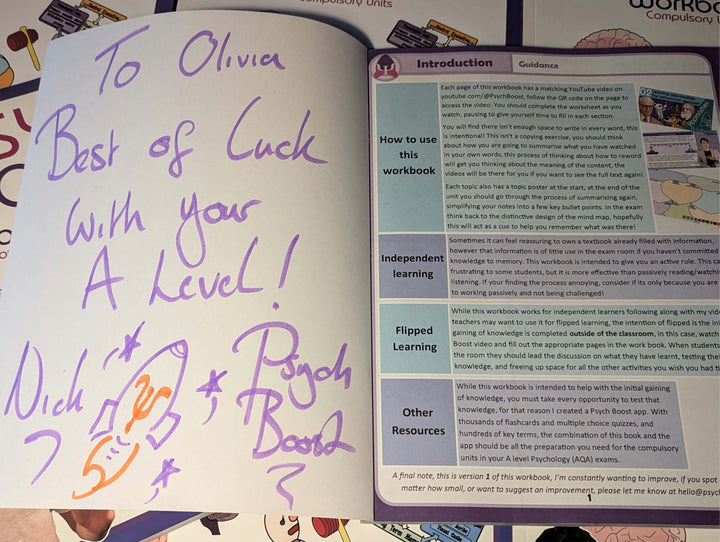 To Olivia
Best of Luck
With your
A Level!
Nick
Psych
Boost
Introduction
Guidance
How to use
this
workbook
Each page of this workbook has a matching YouTube video on
youtube.com/@PsychBoost, follow the QR code on the page to
access the video. You should complete the worksheet as you
watch, pausing to give yourself time to fill in each section.
You will find there isn't enough space to write in every word, this
is intentional! This isn't a copying exercise, you should think
about how you are going to summarise what you have watched
in your own words, this process of thinking about how to reword
will get you thinking about the meaning of the content, the
videos will be there for you if you want to see the full text again!
Each topic also has a topic poster at the start, at the end of the
unit you should go through the process of summarising again,
simplifying your notes into a few key bullet points. In the exam
think back to the distinctive design of the mind map, hopefully
this will act as a cue to help you remember what was there!
Independent
learning
Sometimes it can feel reassuring to own a textbook already filled with information,
however that information is of little use in the exam room if you haven't committed
knowledge to memory. This workbook is intended to give you an active role. This ca
frustrating to some students, but it is more effective than passively reading/watchin
listening. If your finding the process annoying, consider if its only because you are
to working passively and not being challenged!
Flipped
Learning
While this workbook works for independent learners following along with my vide
teachers may want to use it for flipped learning, the intention of flipped is the ini
gaining of knowledge is completed outside of the classroom, in this case, watch
Boost video and fill out the appropriate pages in the work book. When students
the room they should lead the discussion on what they have learnt, testing the
knowledge, and freeing up space for all the other activities you wish you had t
Other
Resources
While this workbook is intended to help with the initial gaining
of knowledge, you must take every opportunity to test that
knowledge, for that reason I created a Psych Boost app. With
thousands of flashcards and multiple choice quizzes, and
hundreds of key terms, the combination of this book and the
app should be all the preparation you need for the compulsory
units in your A level Psychology (AQA) exams.
A final note, this is version 1 of this workbook, I'm constantly wanting to improve, if you spot
matter how small, or want to suggest an improvement, please let me know at hello@psych
1
Compulsory Units
Compulsory Units